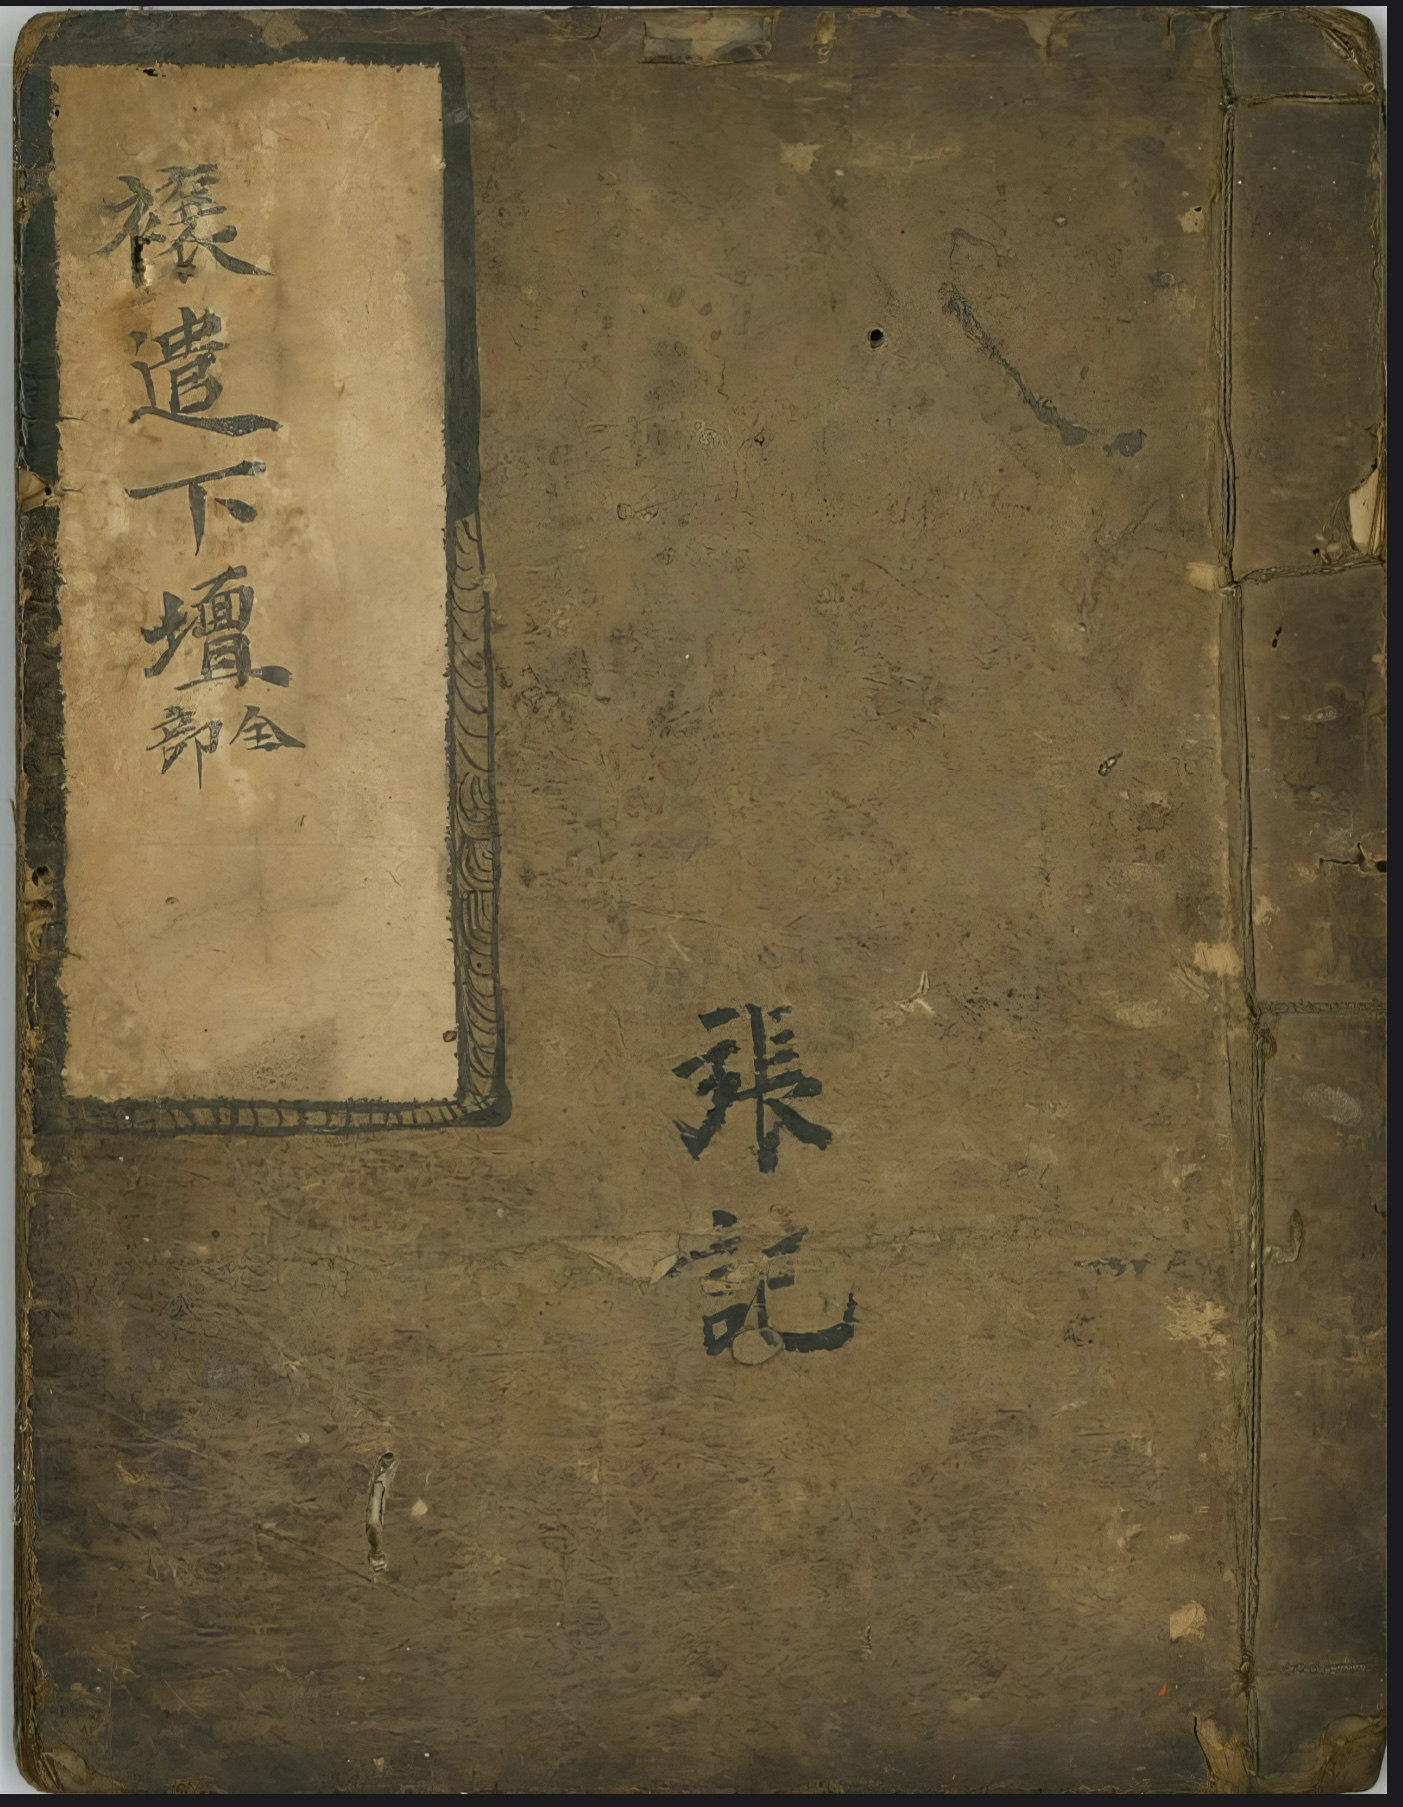 禳遣下壇全部
張記